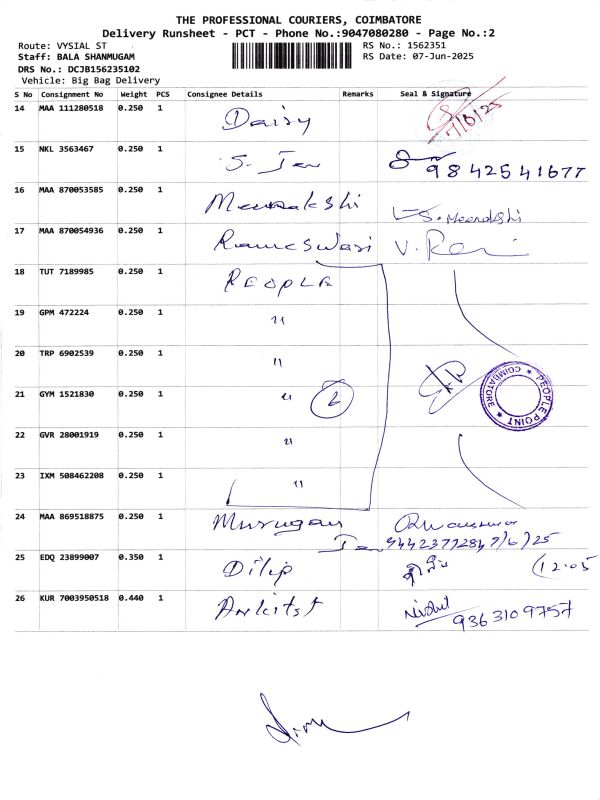 THE PROFESSIONAL COURIERS, COIMBATORE
Delivery Runsheet - PCT - Phone No.:9047080280 - Page No.:2
Route: VYSIAL ST RS No.: 1562351
Staff: BALA SHANMUGAM RS Date: 07-Jun-2025
DRS No.: DCJB156235102
Vehicle: Big Bag Delivery
S No Consignment No Weight PCS Consignee Details Remarks Seal & Signature
14 MAA 111280518 0.250 1 Daisy 7/6/25
15 NKL 3563467 0.250 1 S. Jen 9842541677
16 MAA 870053585 0.250 1 Meenakshi S. Meenakshi
17 MAA 870054936 0.250 1 Rameswari V. Rani
18 TUT 7189985 0.250 1 PEOPLE
19 GPM 472224 0.250 1 "
20 TRP 6902539 0.250 1 "
21 GYM 1521830 0.250 1 " 6 PEOPLE POINT ★ COIMBATORE ★
22 GVR 28001919 0.250 1 "
23 IXM 508462208 0.250 1 "
24 MAA 869518875 0.250 1 Murugan
Jen 9442377284 7/6/25
25 EDQ 23899007 0.350 1 Dilip 12.05
26 KUR 7003950518 0.440 1 Ankitst
9363109757